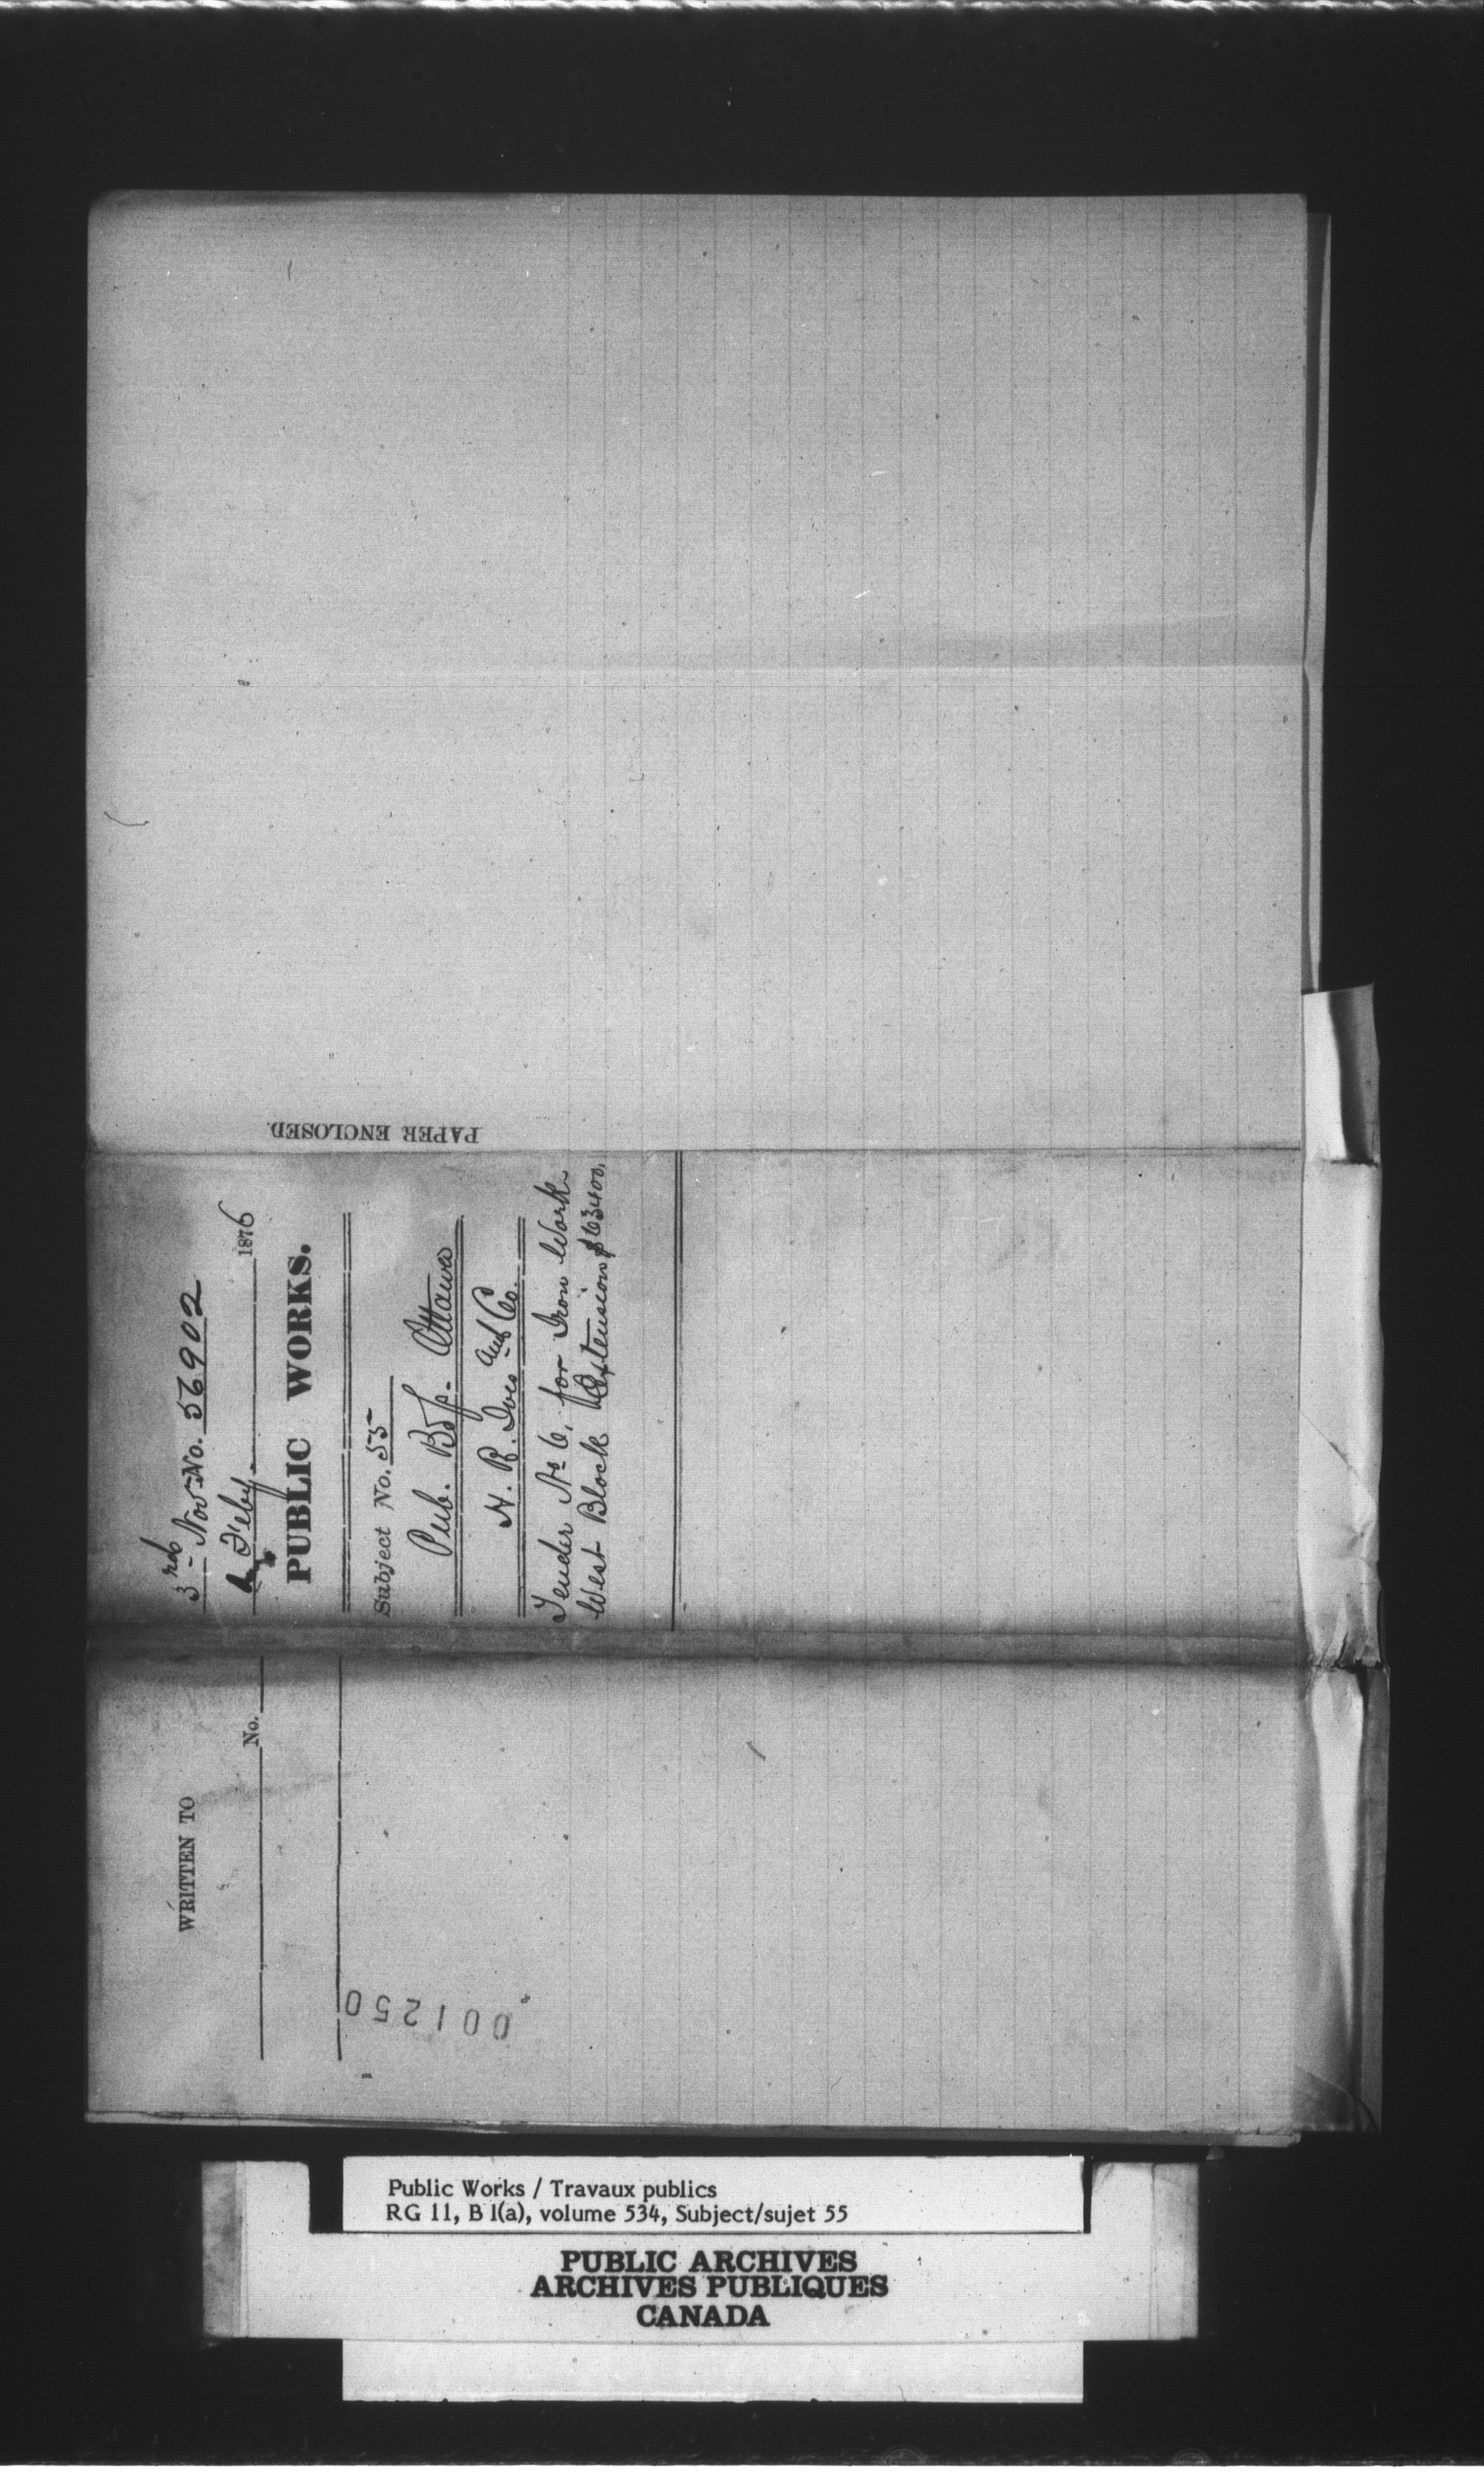 3rd Nov No. 56902
Feby 1876
PUBLIC WORKS.
Subject No. 55
Pub. Bdgs. Ottawa
H. R. Ives and Co.
Tender No 6, for Iron Work
West Block Extension $63400.
PAPER ENCLOSED.
WRITTEN TO
No.
001250
Public Works / Travaux publics
RG 11, B 1(a), volume 534, Subject/sujet 55
PUBLIC ARCHIVES
ARCHIVES PUBLIQUES
CANADA